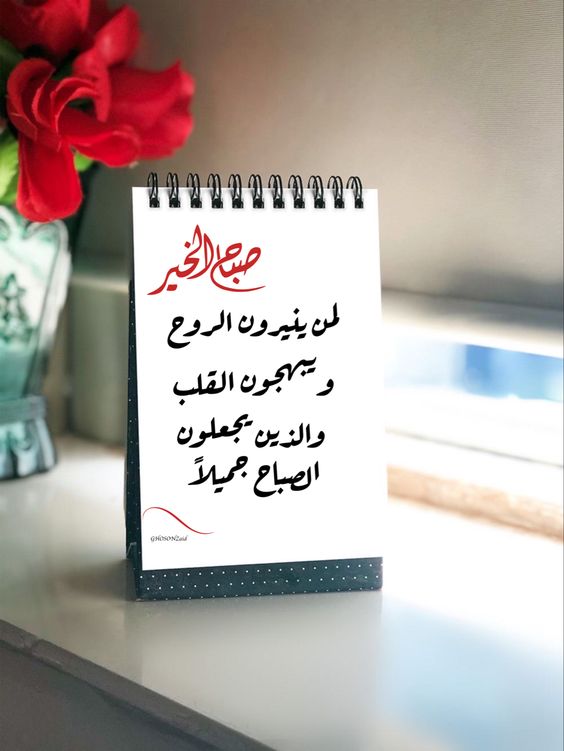 صباح الخير
لمن ينيرون الروح
و يبهجون القلب
والذين يجعلون
الصباح جميلاً
GHOSONZaid